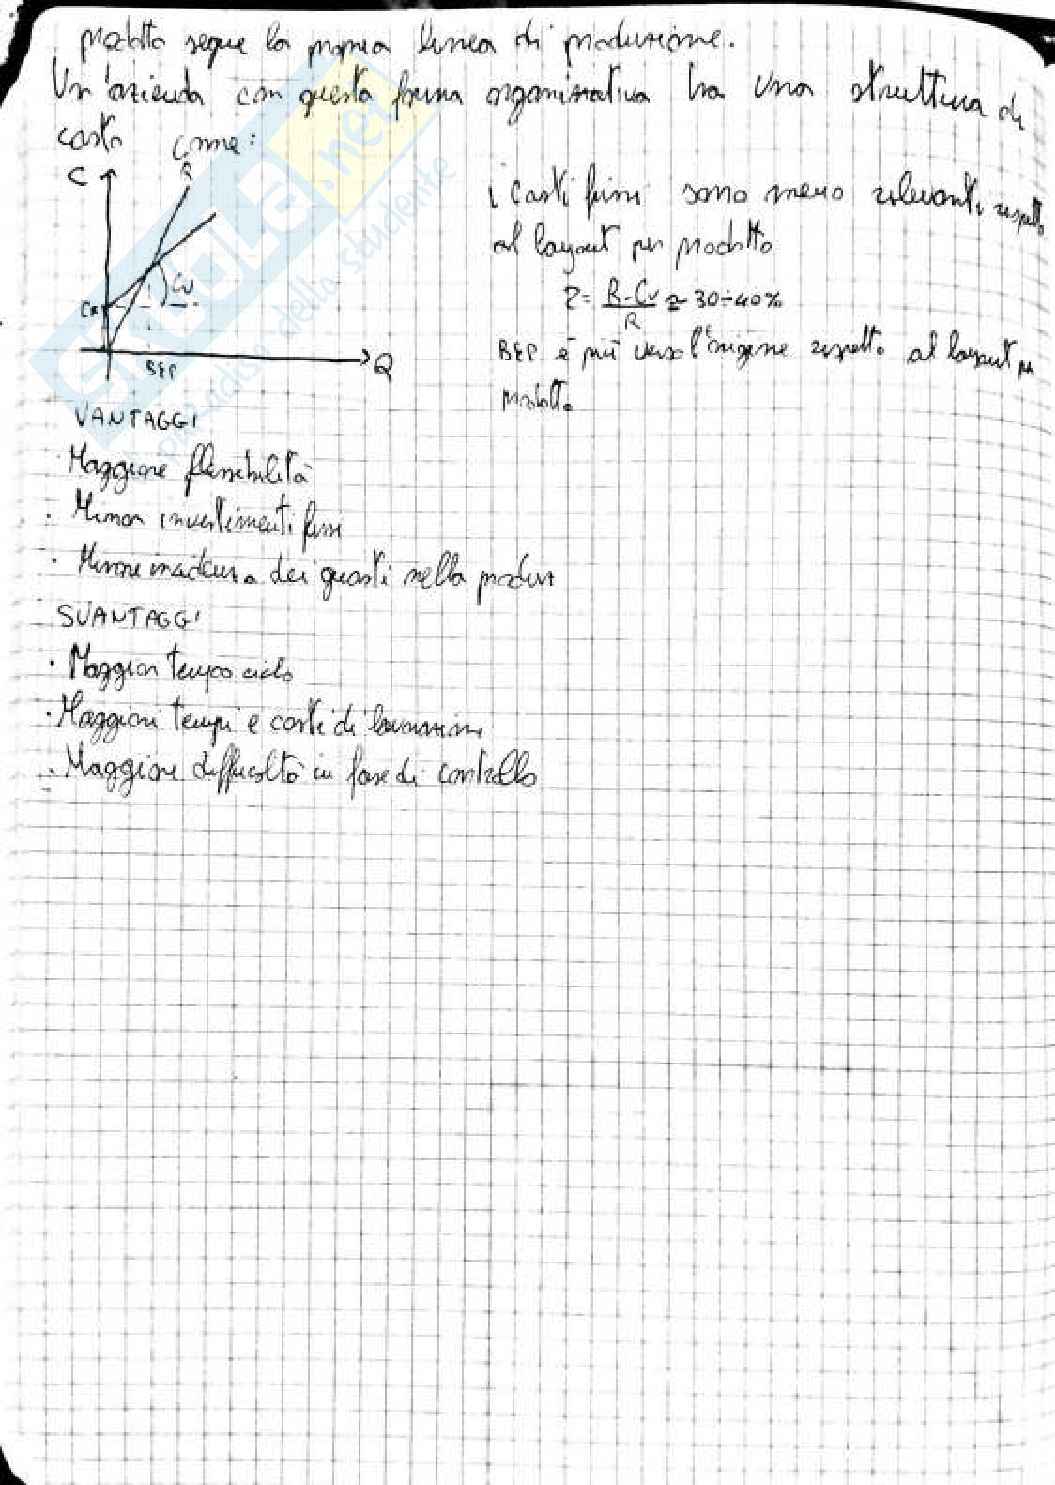 prodotto segue la propria linea di produzione.
Un'azienda con questa forma organizzativa ha una struttura di
costo come:
C
R
Cv
CF
BEP
Q
i costi fissi sono meno rilevanti rispetto
al layout per prodotto
= R-Cv ≃ 30÷40%
R
BEP è più verso l'origine rispetto al layout per
prodotto
VANTAGGI
· Maggiore flessibilità
· Minori investimenti fissi
· Minore incidenza dei guasti nella produz
SVANTAGGI
· Maggior tempo ciclo
· Maggiori tempi e costi di lavorazione
· Maggiore difficoltà in fase di controllo
SKUOLA.net
dello studente